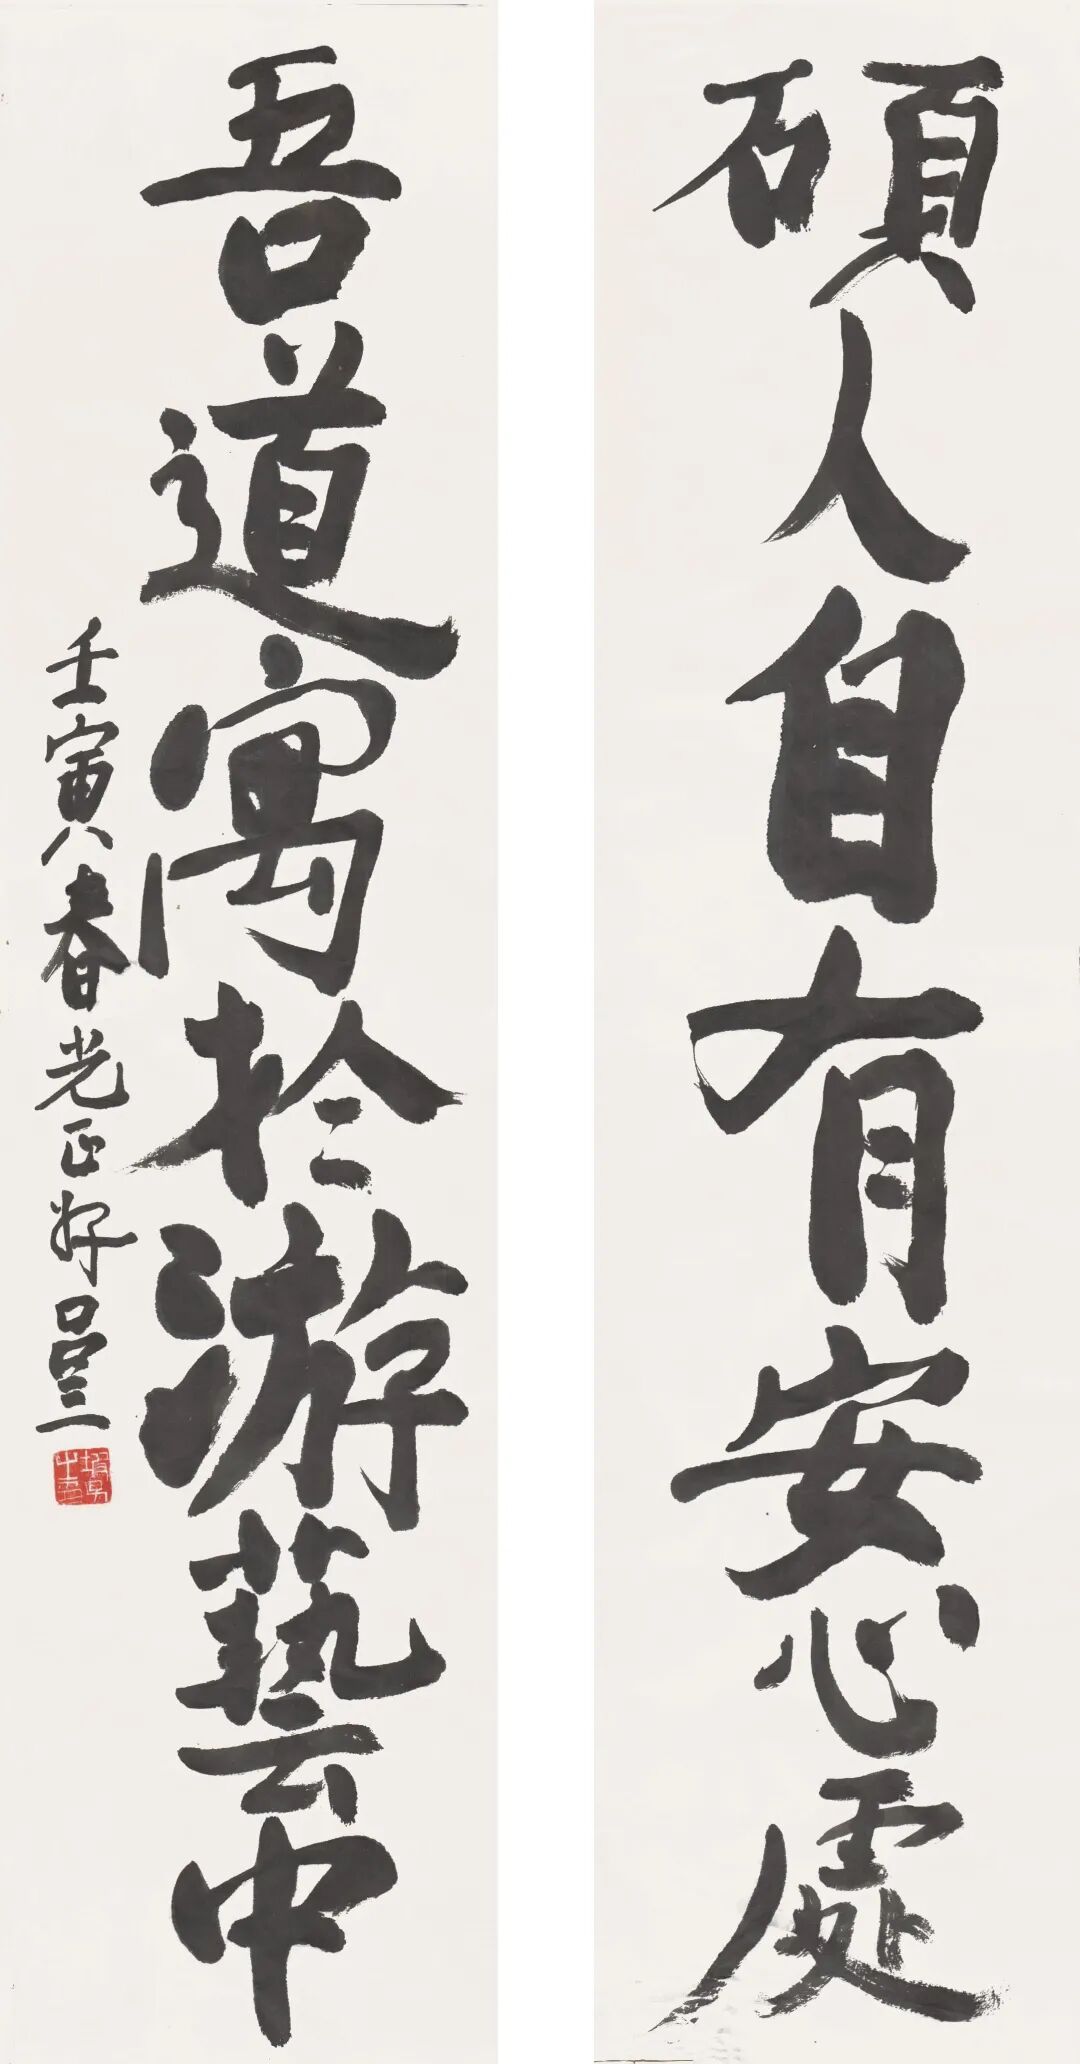 碩人自有安心處
吾道寓於游藝中
壬寅春光正好 墨三